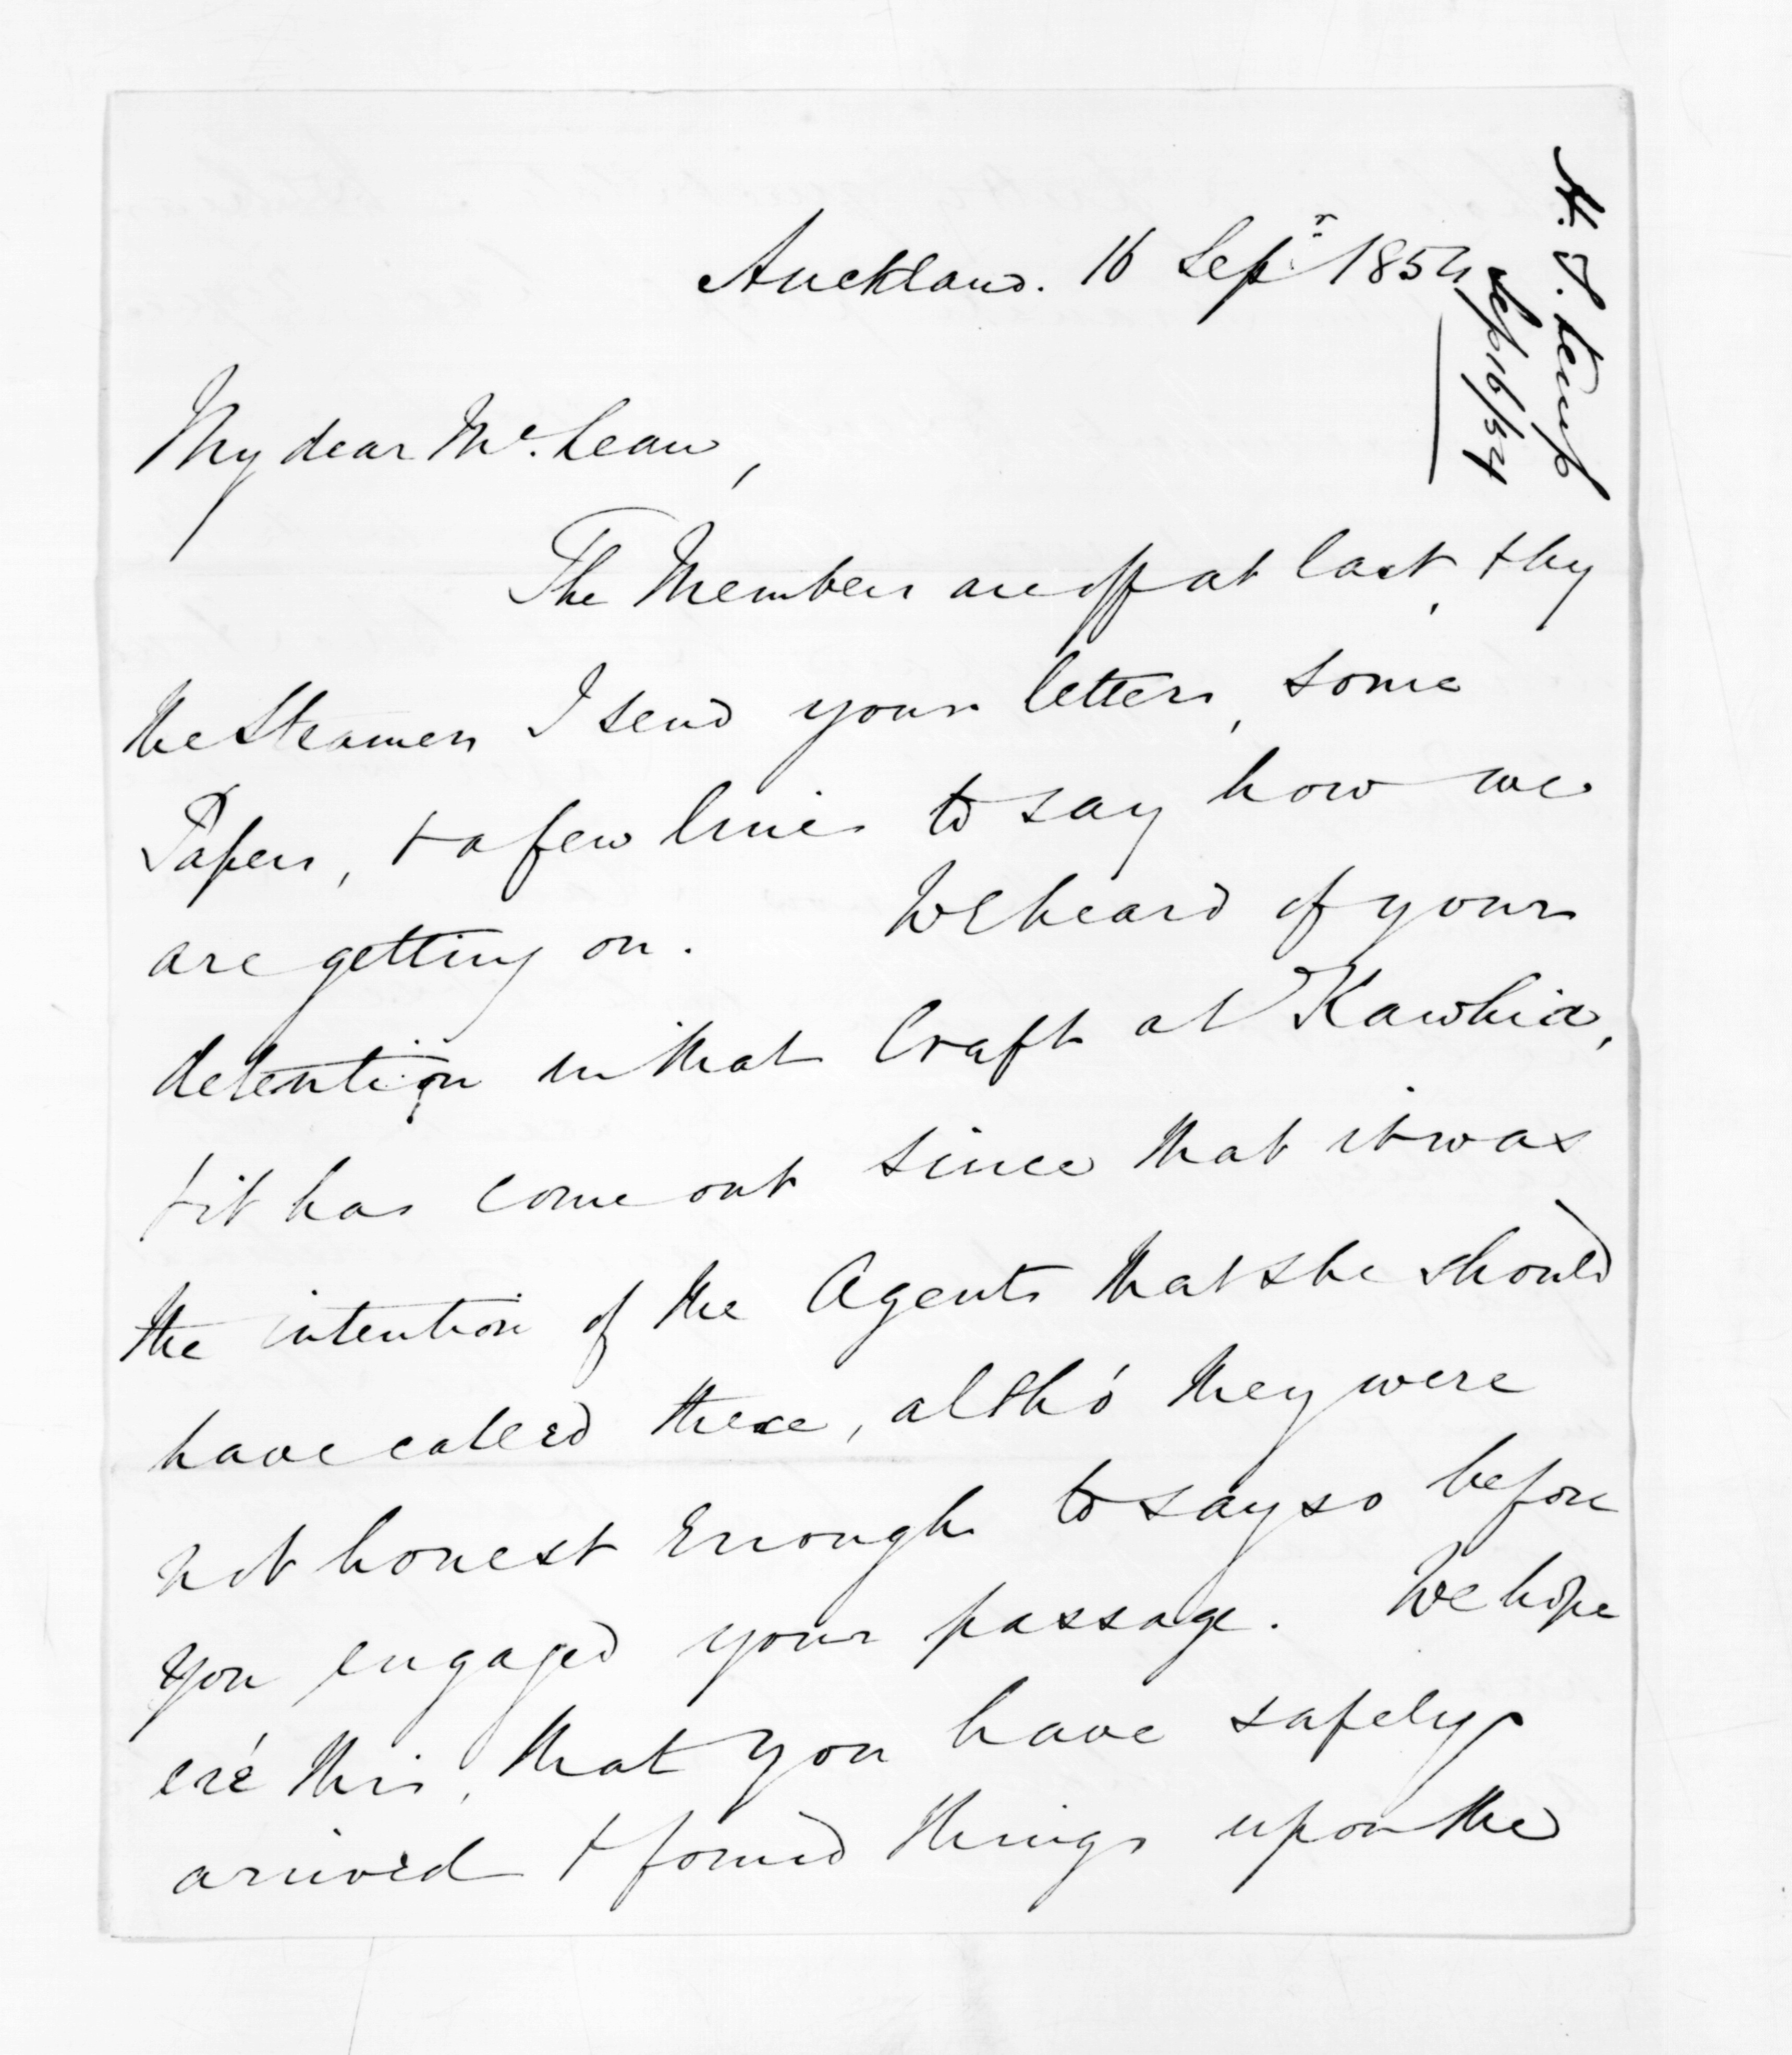 H. T. Kemp
Sep 16/54
Auckland. 16 Sepr 1854
My dear McLean,
The Members are off at last, & by
the Steamer I send your letters, some
Papers, & a few lines to say how we
are getting on. We heard of your
detention in that Craft at Kawhia,
& it has come out since that it was
the intention of the Agents that she should
have called there, altho' they were
not honest enough to say so before
you engaged your passage. We hope
ere this, that you have safely
arrived & found things upon the